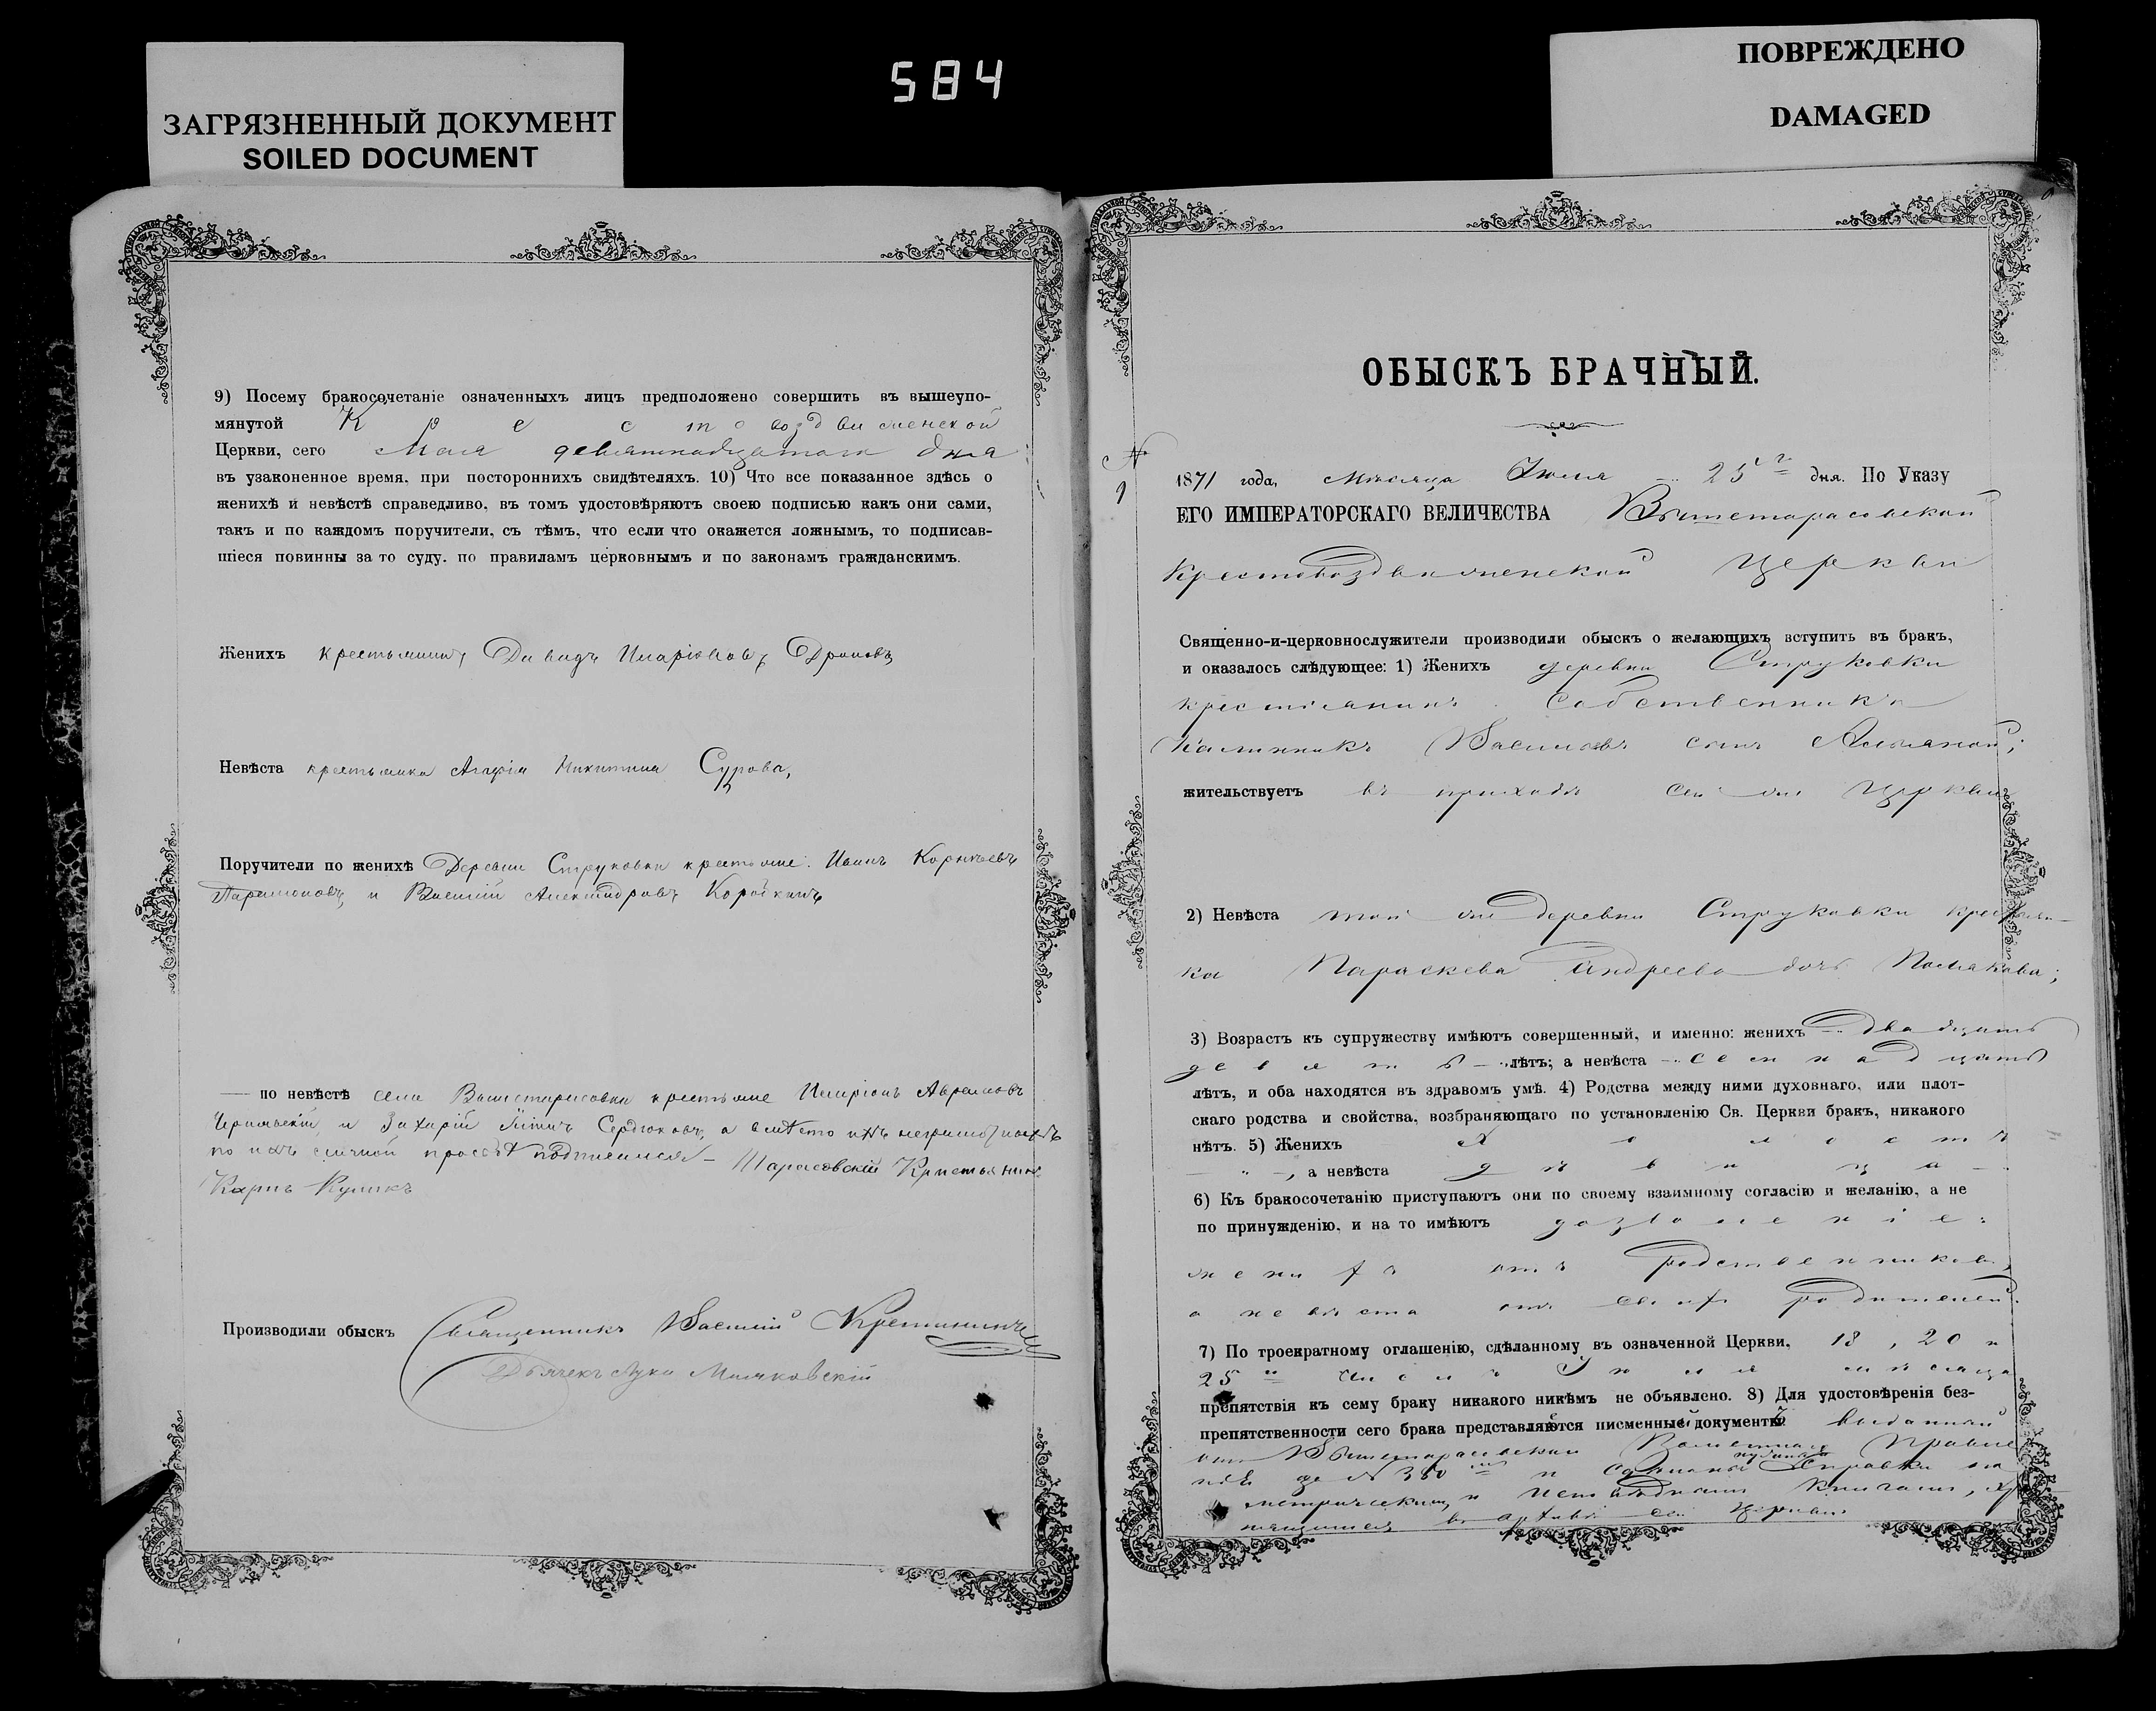 584
ЗАГРЯЗНЕННЫЙ ДОКУМЕНТ
SOILED DOCUMENT
ПОВРЕЖДЕНО
DAMAGED
9) Посему бракосочетаніе означенныхъ лицъ предположено совершить въ вышеупо-
мянутой Крестовоздвиженской
Церкви, сего Мая девятнадцатаго дня
въ узаконенное время, при постороннихъ свидѣтеляхъ. 10) Что все показанное здѣсь о
женихѣ и невѣстѣ справедливо, въ томъ удостовѣряютъ своею подписью какъ они сами,
такъ и по каждомъ поручители, съ тѣмъ, что если что окажется ложнымъ, то подписав-
шіеся повинны за то суду. по правиламъ церковнымъ и по законамъ гражданскимъ.
Женихъ крестьянинъ Давидъ Иларіоновъ Дроновъ
Невѣста крестьянка Агафія Никитина Сурова,
Поручители по женихѣ Деревни Струковки крестьяне: Иванъ Корнѣевъ
Парамоновъ и Василій Александровъ
— по невѣстѣ села Вышетарасовки крестьяне Иларіонъ Аврамовъ
и Захарій Сердюковъ, а вмѣсто ихъ неграмотныхъ
по ихъ личной прозбѣ подписался — Тарасовскій
Карпъ Куликъ
Производили обыскъ Священникъ Василій
Дьячекъ Лука
ОБЫСКЪ БРАЧНЫЙ.
№
9
1871 года, мѣсяца Іюля 25 го дня. По Указу
ЕГО ИМПЕРАТОРСКАГО ВЕЛИЧЕСТВА Вышетарасовской
Крестовоздвиженской Церкви
Священно-и-церковнослужители производили обыскъ о желающихъ вступить въ бракъ,
и оказалось слѣдующее: 1) Женихъ деревни Струковки
собственникъ
Калинникъ Васильевъ сынъ
жительствуетъ въ приходѣ сей же Церкви
2) Невѣста той же деревни Струковки крестьян-
ка Параскева Андреева дочь Полякова;
3) Возрастъ къ супружеству имѣютъ совершенный, и именно: женихъ — двадцать
девять — лѣтъ; а невѣста — семнадцать
лѣтъ, и оба находятся въ здравомъ умѣ. 4) Родства между ними духовнаго, или плот-
скаго родства и свойства, возбраняющаго по установленію Св. Церкви бракъ, никакого
нѣтъ. 5) Женихъ холостъ
— " —, а невѣста дѣвица —
6) Къ бракосочетанію приступаютъ они по своему взаимному согласію и желанію, а не
по принужденію, и на то имѣютъ дозволеніе:
женихъ отъ родственниковъ,
а невѣста отъ своихъ родителей.
7) По троекратному оглашенію, сдѣланному въ означенной Церкви, 18, 20 и
25 го числъ Іюля мѣсяца
препятствія къ сему браку никакого никѣмъ не объявлено. 8) Для удостовѣренія без-
препятственности сего брака представляется писменный документъ выданный
отъ Вышетарасовскаго Волостнаго Правле
нія за № 380 и справки по
метрическимъ и исповѣднымъ книгамъ, хра-
нящимся въ архивѣ сей церкви